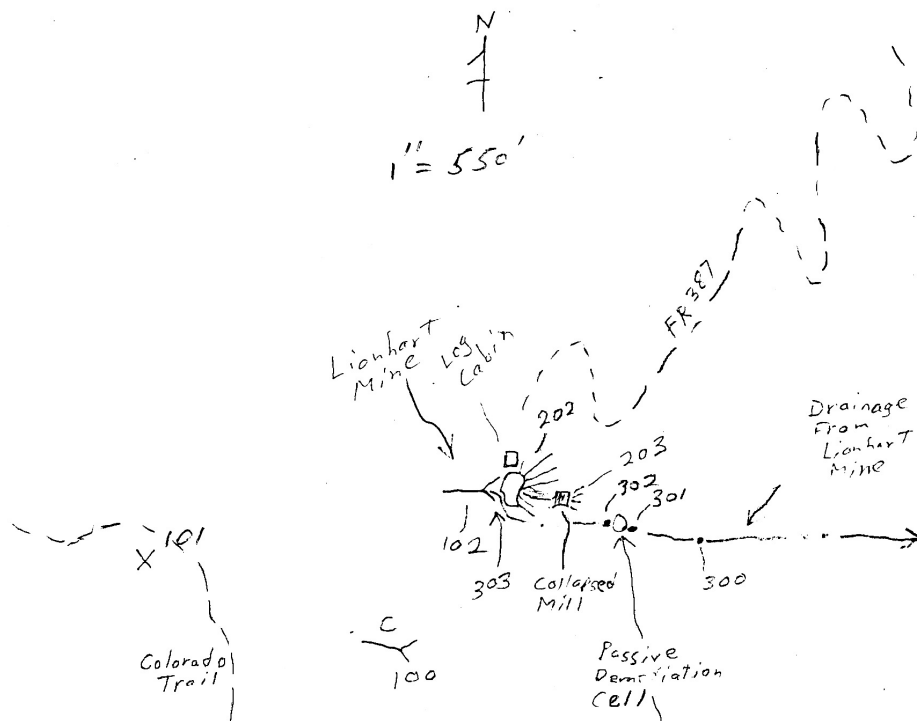 N
1" = 550'
FR 387
Lionhart
Mine
Log
Cabin
202
203
302
301
Drainage
From
Lionhart
Mine
101
X
102
303
Collapsed
Mill
300
C
100
Colorado
Trail
Passive
Cell